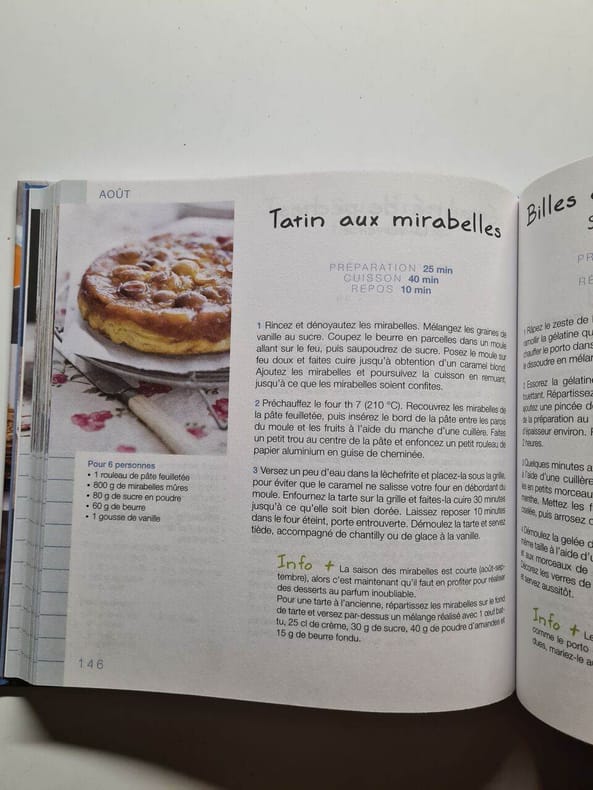 AOÛT
Tatin aux mirabelles
PRÉPARATION 25 min
CUISSON 40 min
REPOS 10 min
1 Rincez et dénoyautez les mirabelles. Mélangez les graines de
vanille au sucre. Coupez le beurre en parcelles dans un moule
allant sur le feu, puis saupoudrez de sucre. Posez le moule sur
feu doux et faites cuire jusqu'à obtention d'un caramel blond.
Ajoutez les mirabelles et poursuivez la cuisson en remuant,
jusqu'à ce que les mirabelles soient confites.
2 Préchauffez le four th 7 (210 °C). Recouvrez les mirabelles de
la pâte feuilletée, puis insérez le bord de la pâte entre les parois
du moule et les fruits à l'aide du manche d'une cuillère. Faites
un petit trou au centre de la pâte et enfoncez un petit rouleau de
papier aluminium en guise de cheminée.
3 Versez un peu d'eau dans la lèchefrite et placez-la sous la grille,
pour éviter que le caramel ne salisse votre four en débordant du
moule. Enfournez la tarte sur la grille et faites-la cuire 30 minutes
jusqu'à ce qu'elle soit bien dorée. Laissez reposer 10 minutes
dans le four éteint, porte entrouverte. Démoulez la tarte et servez
tiède, accompagné de chantilly ou de glace à la vanille.
Info + La saison des mirabelles est courte (août-sep-
tembre), alors c'est maintenant qu'il faut en profiter pour réaliser
des desserts au parfum inoubliable.
Pour une tarte à l'ancienne, répartissez les mirabelles sur le fond
de tarte et versez par-dessus un mélange réalisé avec 1 œuf bat-
tu, 25 cl de crème, 30 g de sucre, 40 g de poudre d'amandes et
15 g de beurre fondu.
Pour 6 personnes
• 1 rouleau de pâte feuilletée
• 800 g de mirabelles mûres
• 80 g de sucre en poudre
• 60 g de beurre
• 1 gousse de vanille
146
Billes
PR
RE
1 Râpez le zeste de
ramollir la gélatine
chauffer le porto dans
à dissoudre en
2 Essorez la gélatine
Répartissez
ajoutez une pincée de
de la préparation au
d'épaisseur environ.
2 heures.
3 Quelques minutes
à l'aide d'une cuillère
en petits morceaux
Mettez les
puis arrosez
4 Démoulez la gelée
même taille à l'aide d'u
et aux morceaux de
Décorez les verres de
et servez aussitôt.
Info + Le
comme le porto
dues, mariez-le